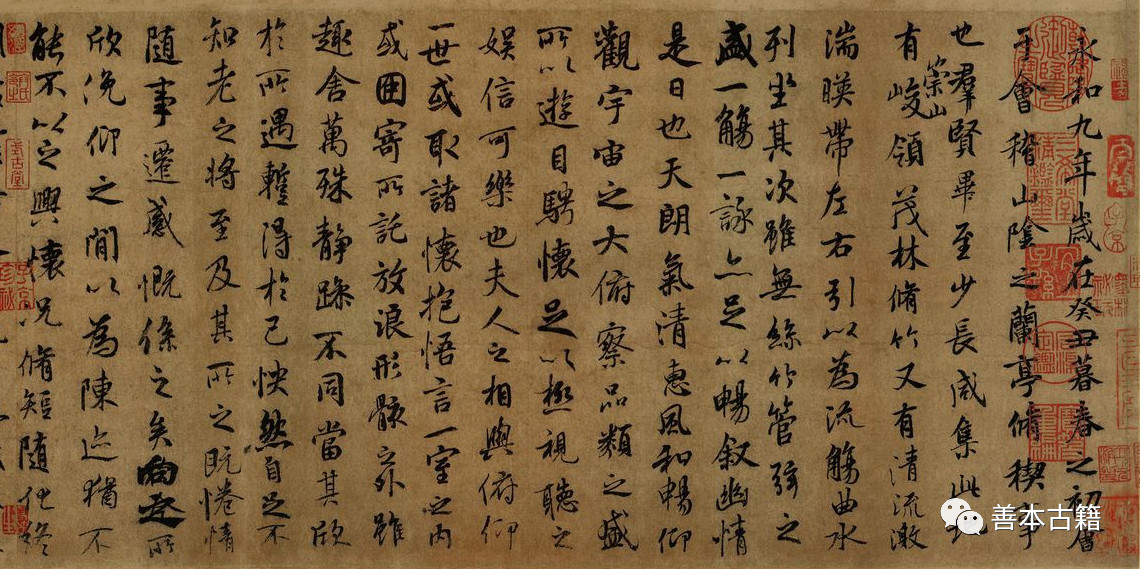 永和九年歲在癸丑暮春之初會
于會稽山陰之蘭亭脩稧事
也羣賢畢至少長咸集此地
有崇山峻領茂林脩竹又有清流激
湍暎帶左右引以為流觴曲水
列坐其次雖無絲竹管弦之
盛一觴一詠亦足以暢叙幽情
是日也天朗氣清惠風和暢仰
觀宇宙之大俯察品類之盛
所以遊目騁懷足以極視聽之
娛信可樂也夫人之相與俯仰
一世或取諸懷抱悟言一室之內
或因寄所託放浪形骸之外雖
趣舍萬殊靜躁不同當其欣
於所遇蹔得於己怏然自足不
知老之將至及其所之既惓情
隨事遷感慨係之矣向之所
欣俛仰之閒以為陳迹猶不
能不以之興懷況脩短隨化終
善本古籍